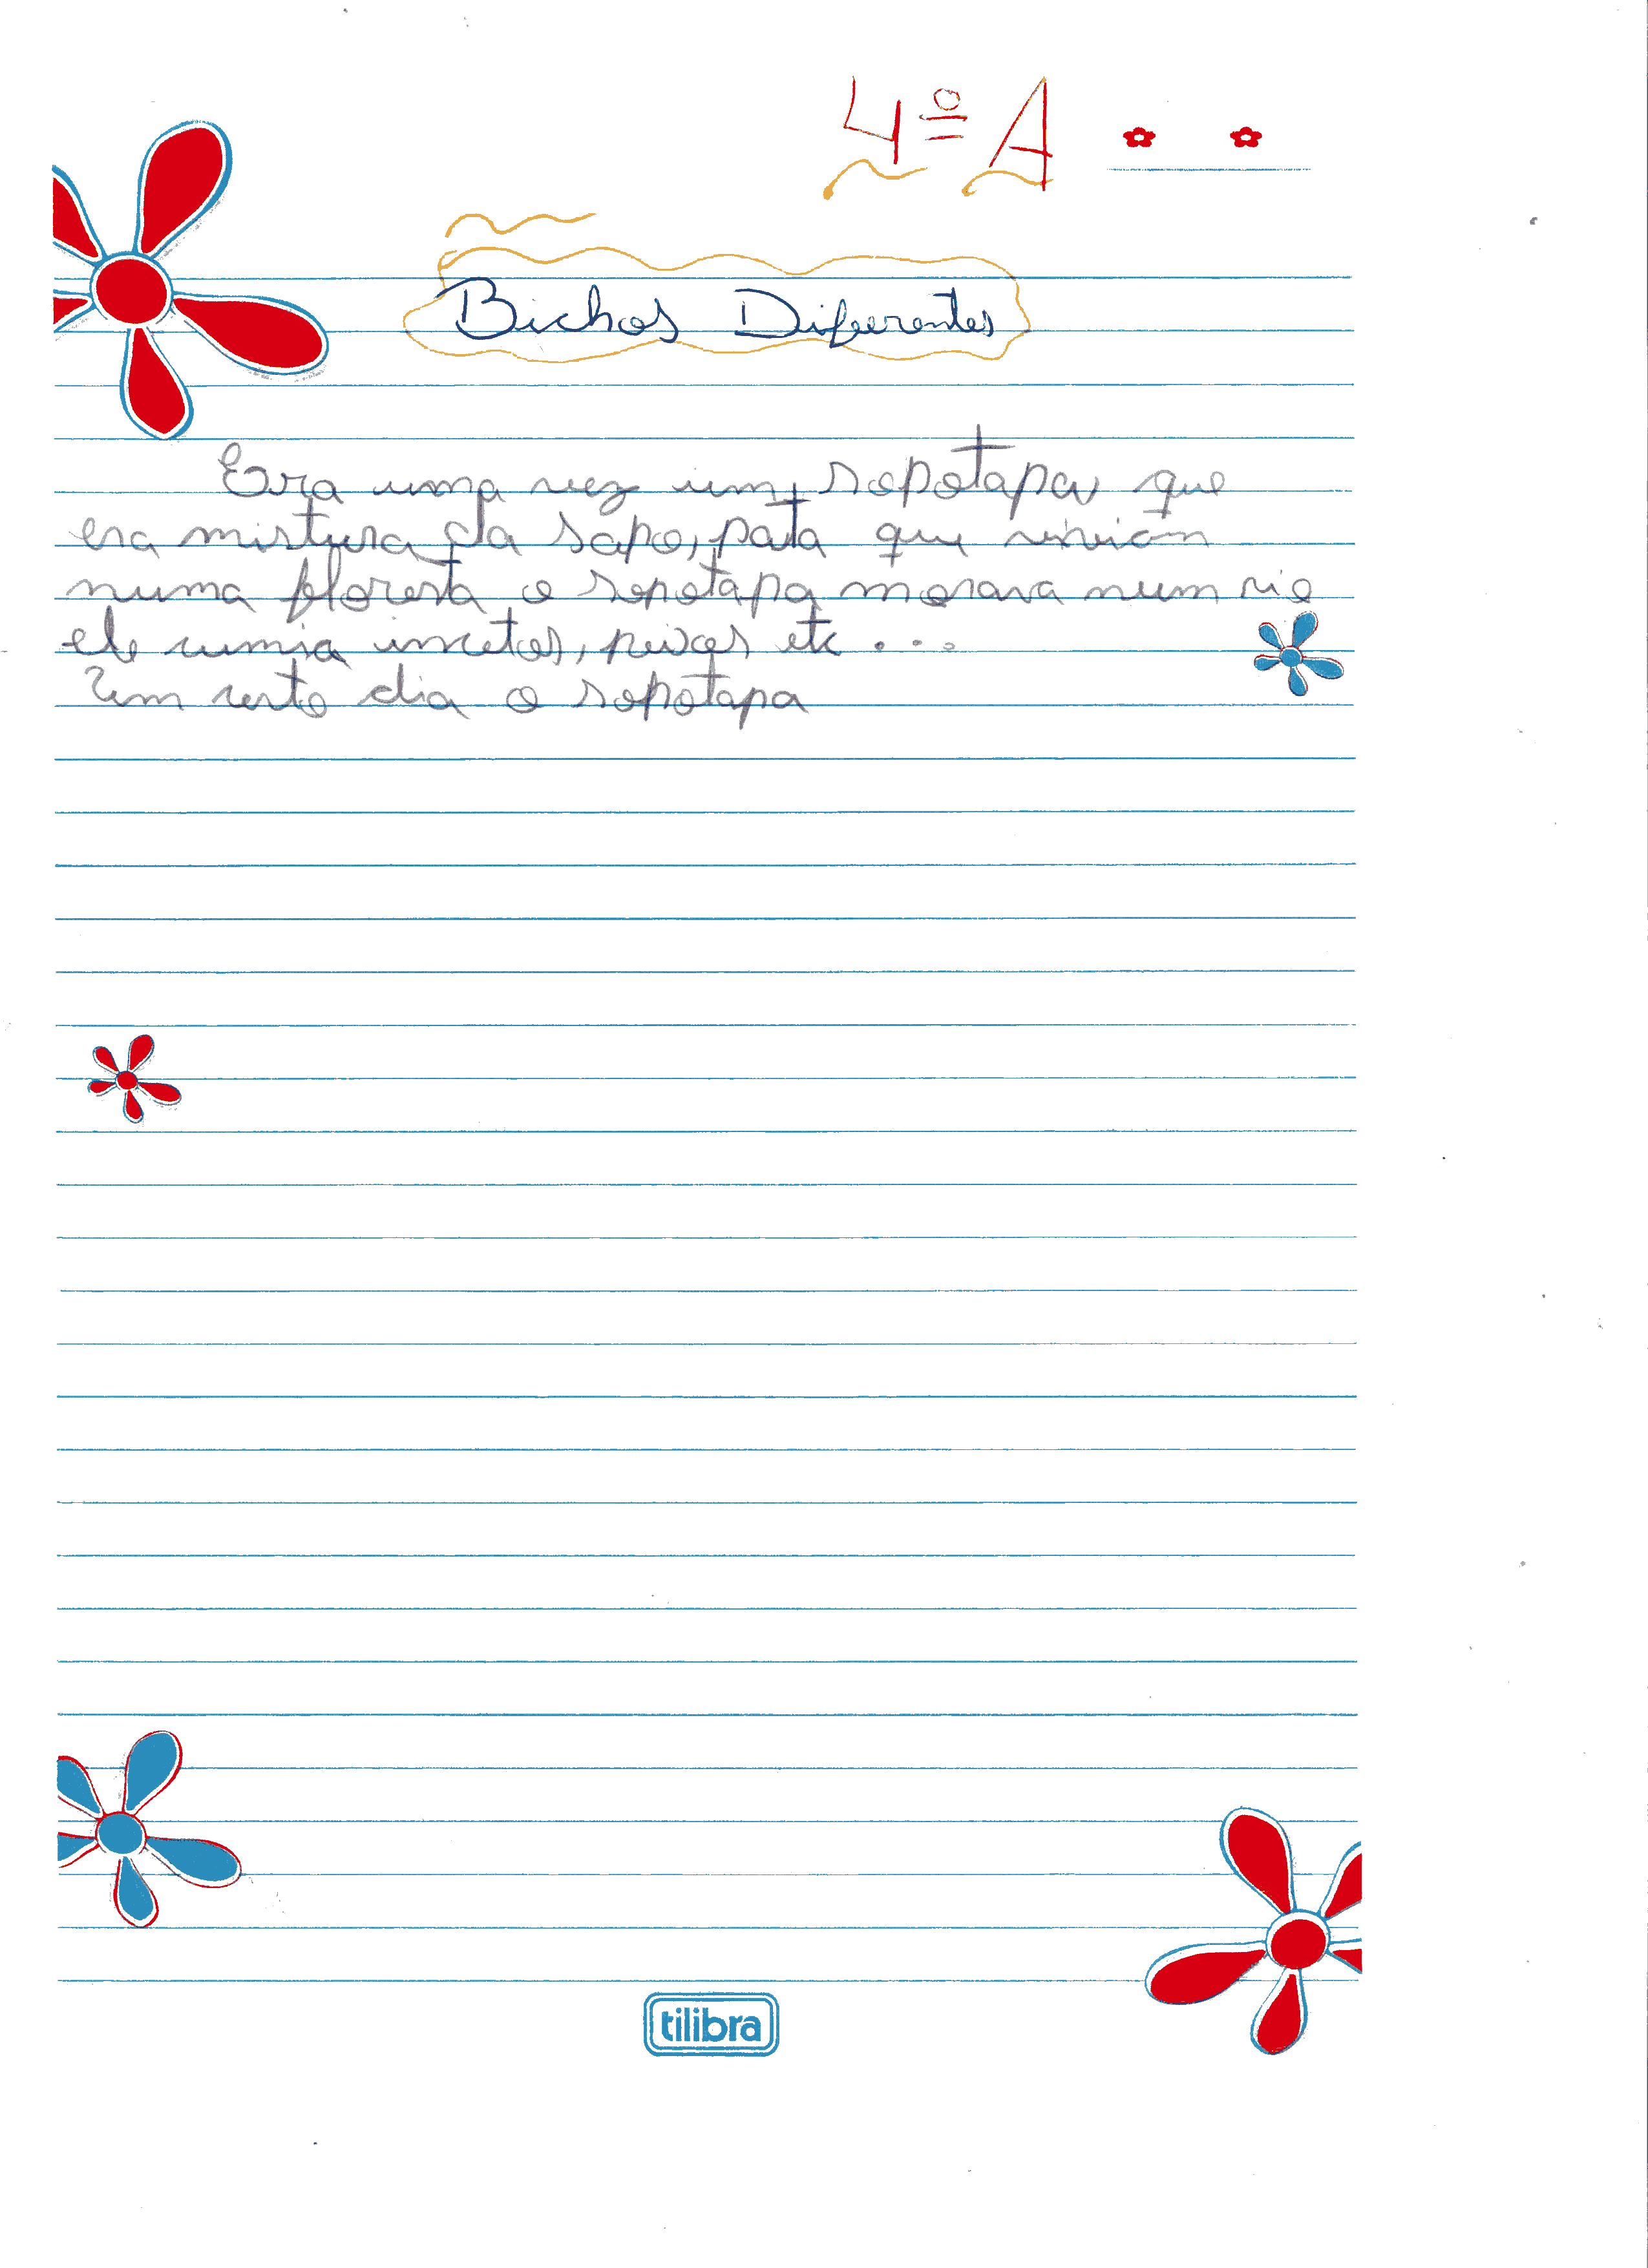 4º A
Bichos Diferentes
Era uma vez um sopotapa que
era mistura da sapo, pata que viviam
numa floresta o sopotapa morava num rio
ele cumia incetos, peixes etc...
Um certo dia o sopotapa
tilibra